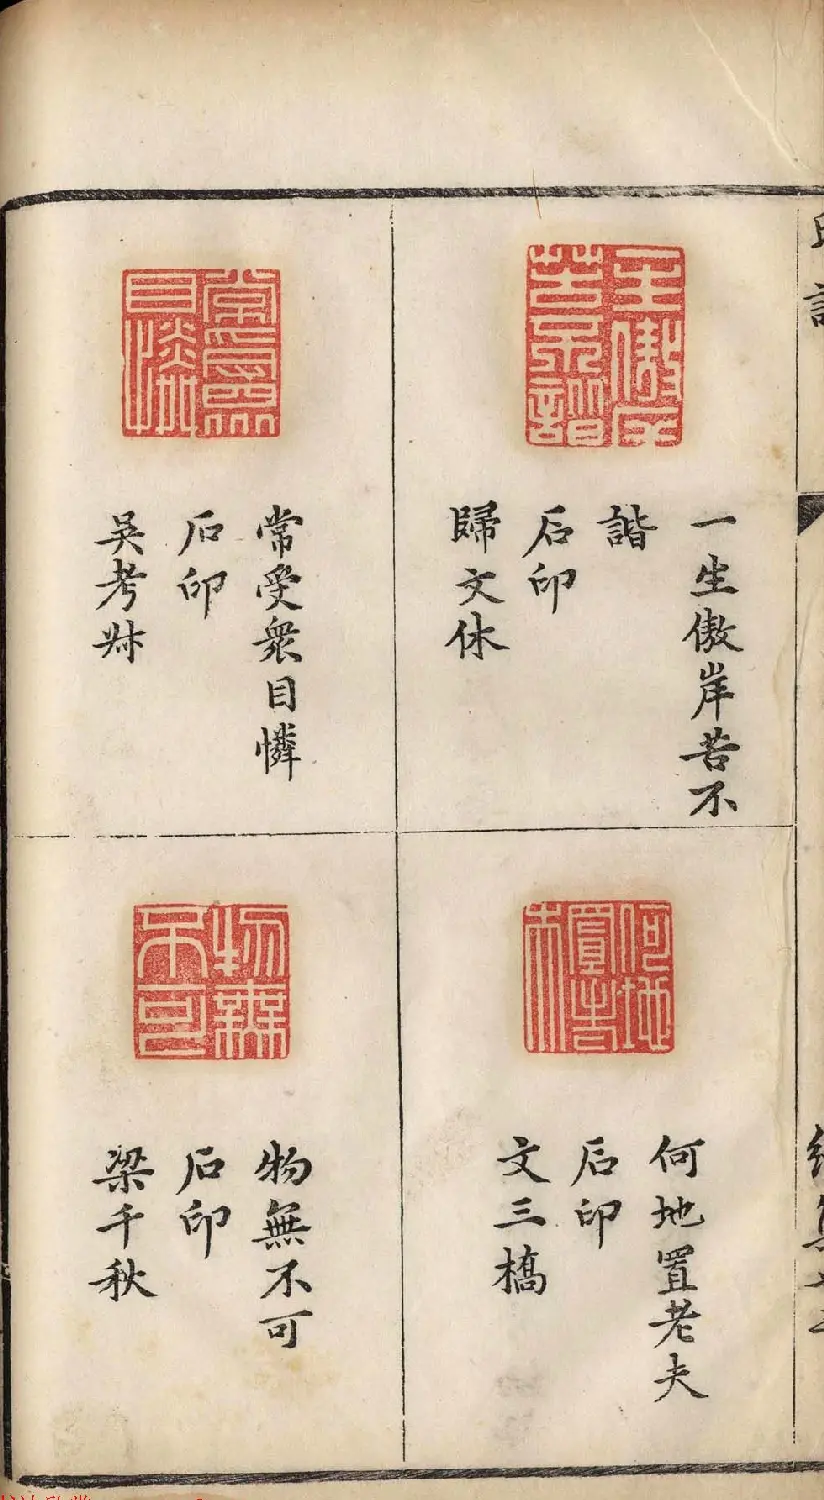 一生傲岸苦不
諧
石印
歸文休
何地置老夫
石印
文三橋
常受衆目憐
石印
吳考叔
物無不可
石印
梁千秋